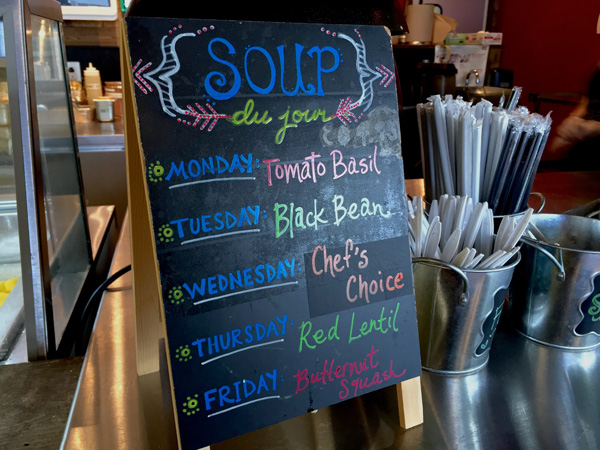 SOUP
du jour
MONDAY: Tomato Basil
TUESDAY: Black Bean
WEDNESDAY: Chef's
Choice
THURSDAY: Red Lentil
FRIDAY Butternut
Squash